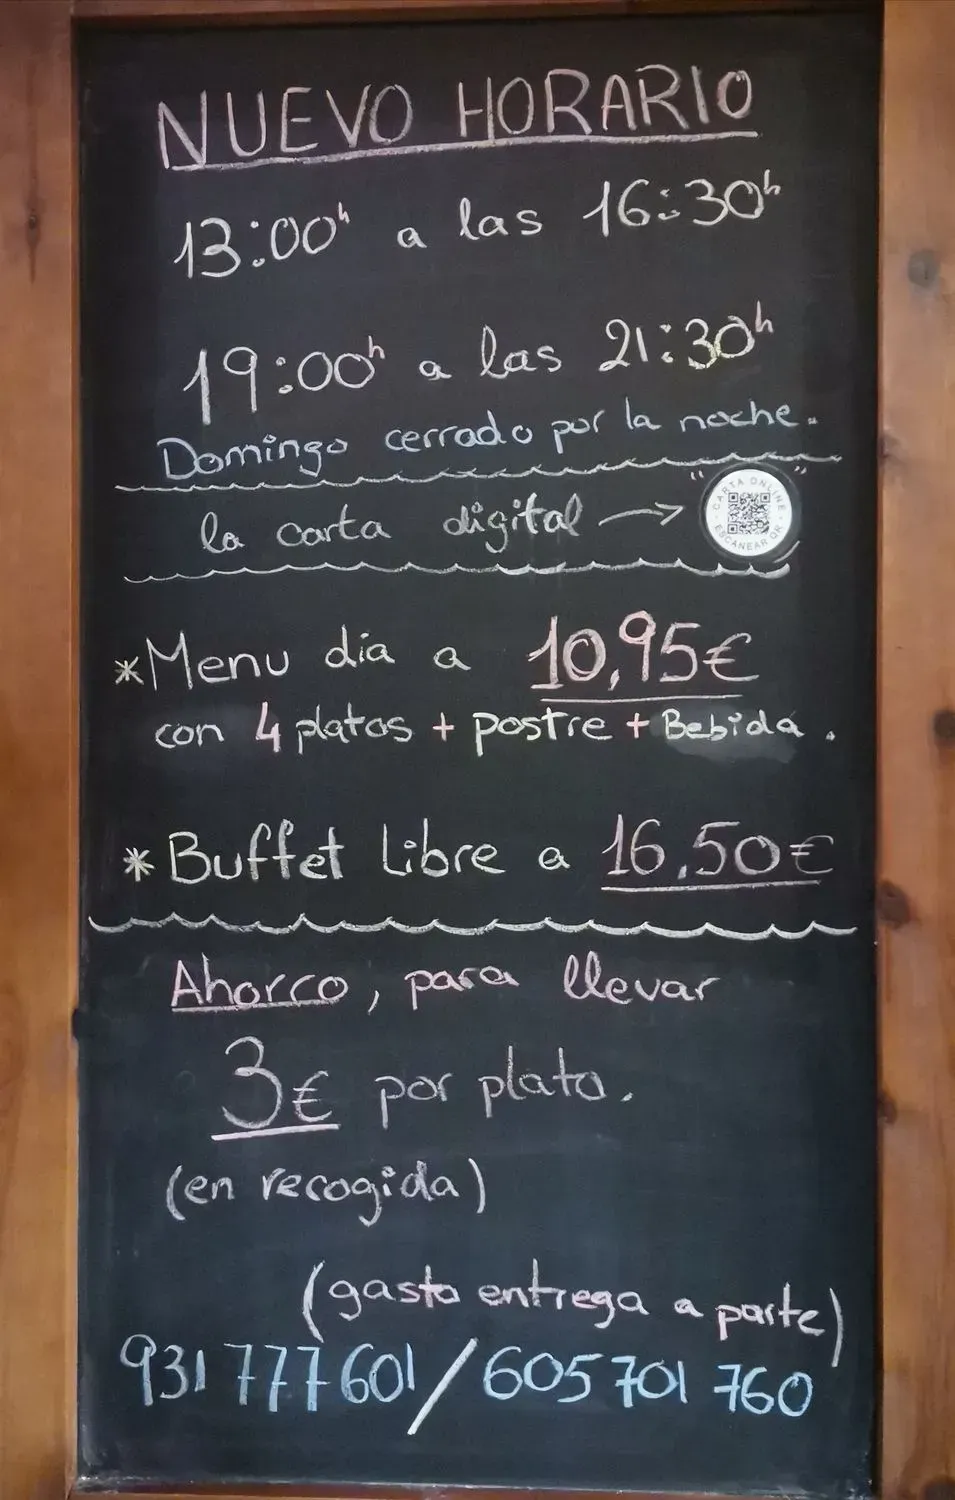 NUEVO HORARIO
13:00h a las 16:30h
19:00h a las 21:30h
Domingo cerrado por la noche.
la carta digital → "CARTA ONLINE · ESCANEAR QR"
*Menu dia a 10,95€
con 4 platos + postre + Bebida.
*Buffet Libre a 16,50€
Ahorro, para llevar
3€ por plato.
(en recogida)
(gasto entrega a parte)
931 777 601 / 605 701 760